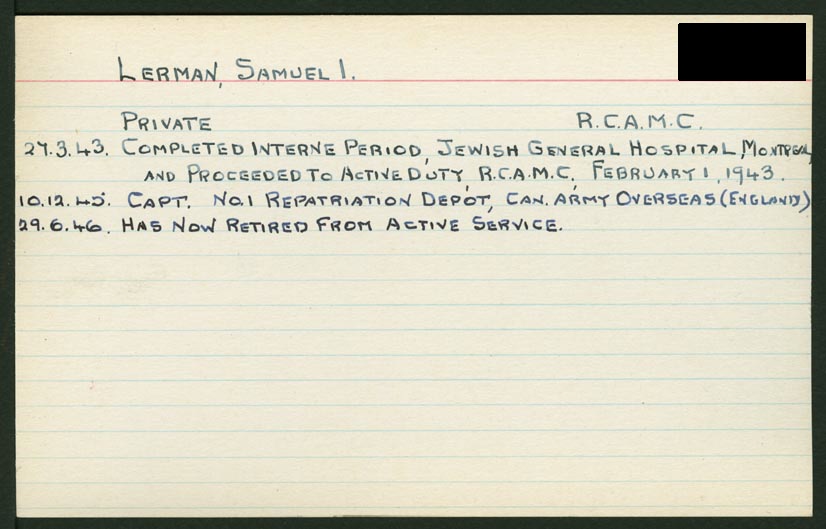 LERMAN, SAMUEL I.
PRIVATE R.C.A.M.C.
27.3.43. COMPLETED INTERNE PERIOD, JEWISH GENERAL HOSPITAL, MONTREAL,
AND PROCEEDED TO ACTIVE DUTY, R.C.A.M.C, FEBRUARY 1, 1943.
10.12.45. CAPT. NO.1 REPATRIATION DEPOT, CAN. ARMY OVERSEAS (ENGLAND)
29.6.46. HAS NOW RETIRED FROM ACTIVE SERVICE.